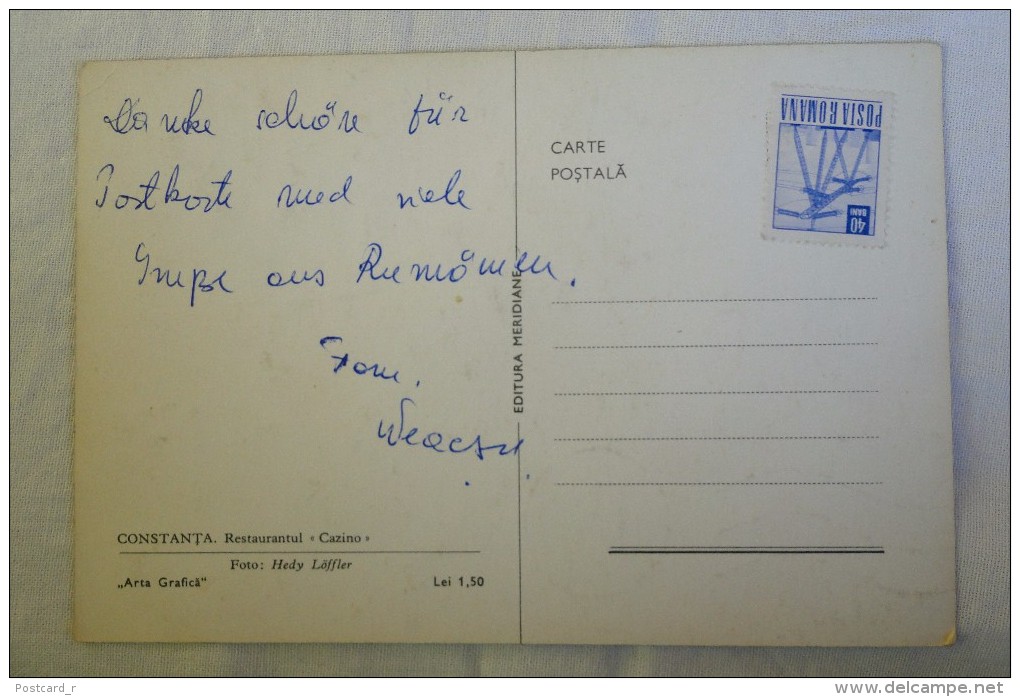 Danke schöne für
Postkarte und viele
Grüße aus Rumänien.
Fam.
Neacsu
CONSTANŢA. Restaurantul « Cazino »
Foto: Hedy Löffler
„Arta Grafică” Lei 1,50
EDITURA MERIDIANE
CARTE
POŞTALĂ
POSTA ROMANA
40
BANI
Postcard_r
www.delcampe.net